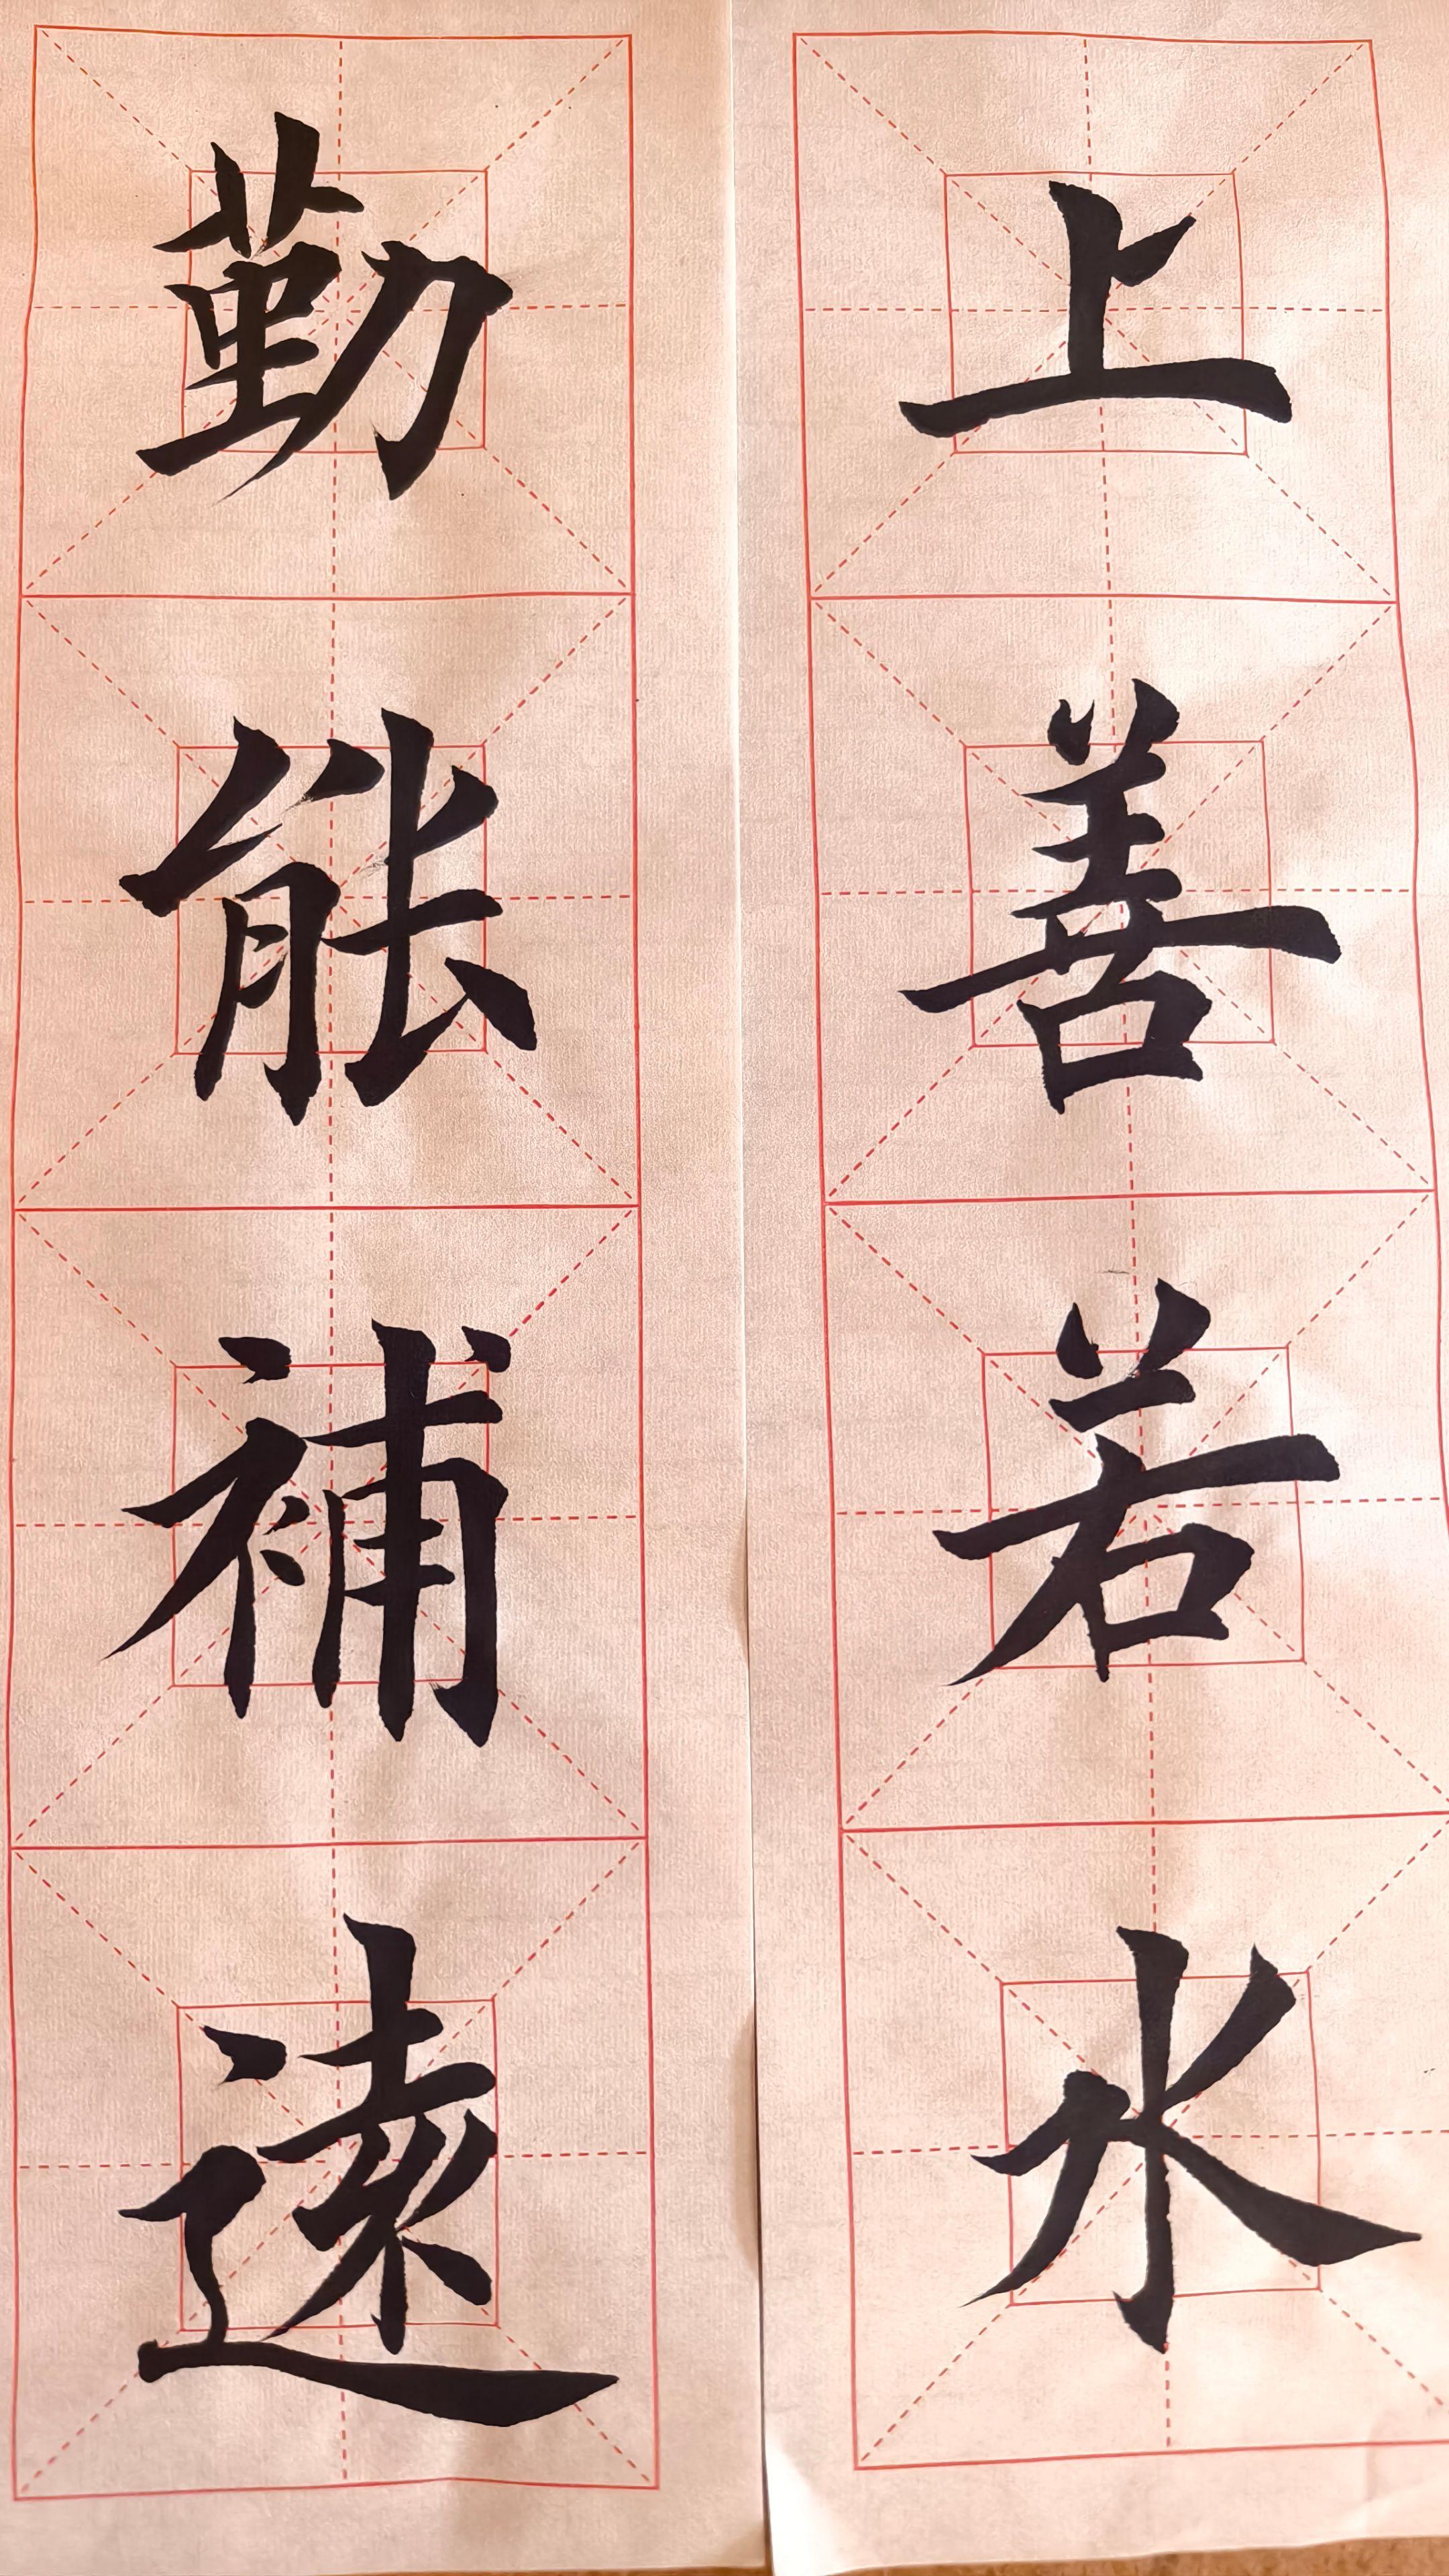 上善若水
勤能補遠